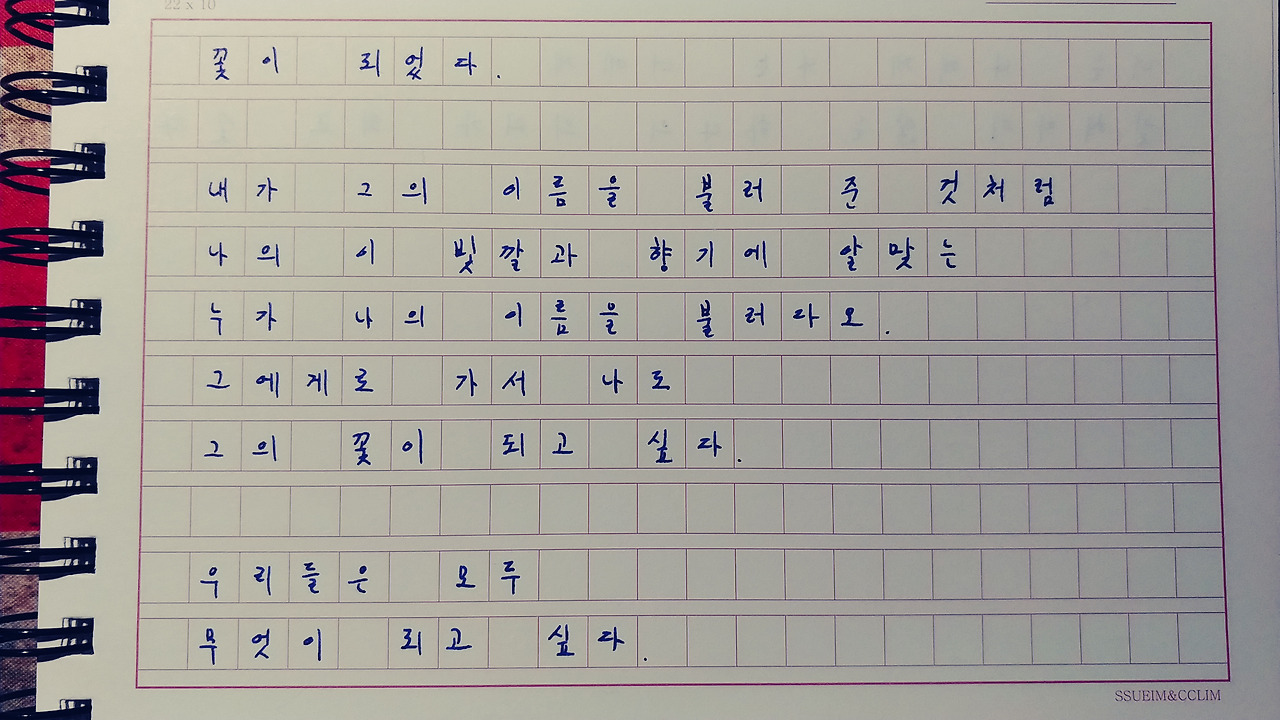 22 x 10
꽃이 되었다.
내가 그의 이름을 불러 준 것처럼
나의 이 빛깔과 향기에 알맞는
누가 나의 이름을 불러다오.
그에게로 가서 나도
그의 꽃이 되고 싶다.
우리들은 모두
무엇이 되고 싶다.
SSUEIM&CCLIM